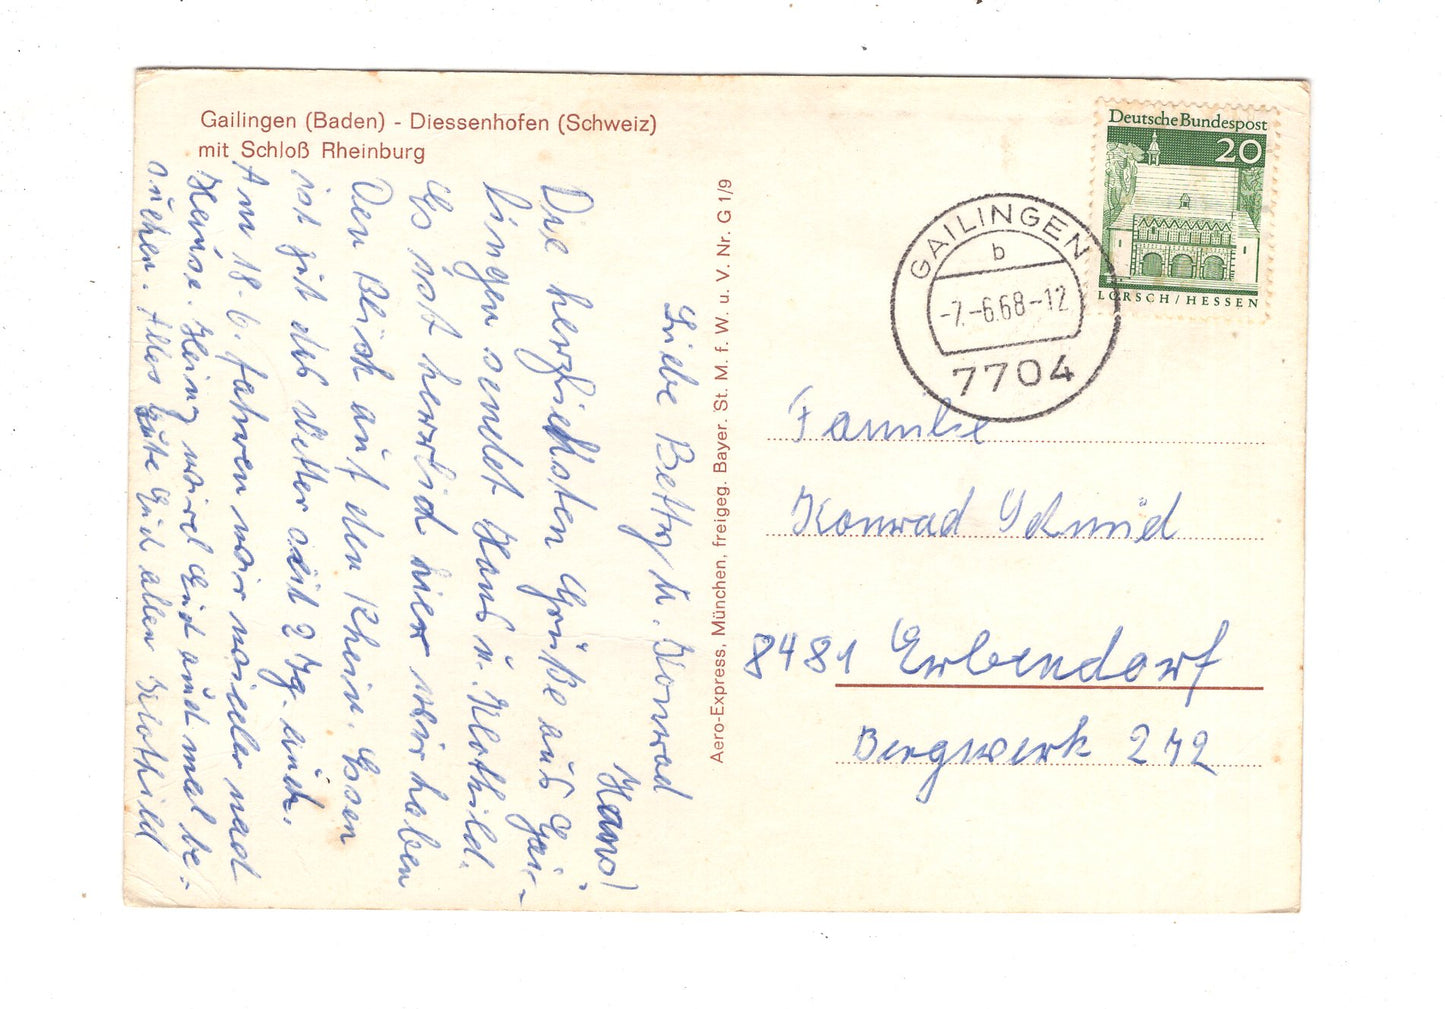 Gailingen (Baden) - Diessenhofen (Schweiz)
mit Schloß Rheinburg
Liebe Betty u. Konrad
Die herzlichsten Grüße aus Gai-
lingen sendet Hans u. Klothild.
Es ist herrlich hier wir haben
Den Blick auf den Rhein. Essen
ist gut das Wetter seit 2 Tg. auch.
Am 18.6. fahren wir wieder nach
Hause. Heinz wird Euch auch mal be-
suchen. Alles gute Euch allen Klothild
Hans
Aero-Express, München, freigeg. Bayer. St. M. f. W. u. V. Nr. G 1/9
Deutsche Bundespost
20
LORSCH/HESSEN
GAILINGEN
b
-7.-6.68-12
7704
Familie
Konrad Schmid
8481 Erbendorf
Bergwerk 242